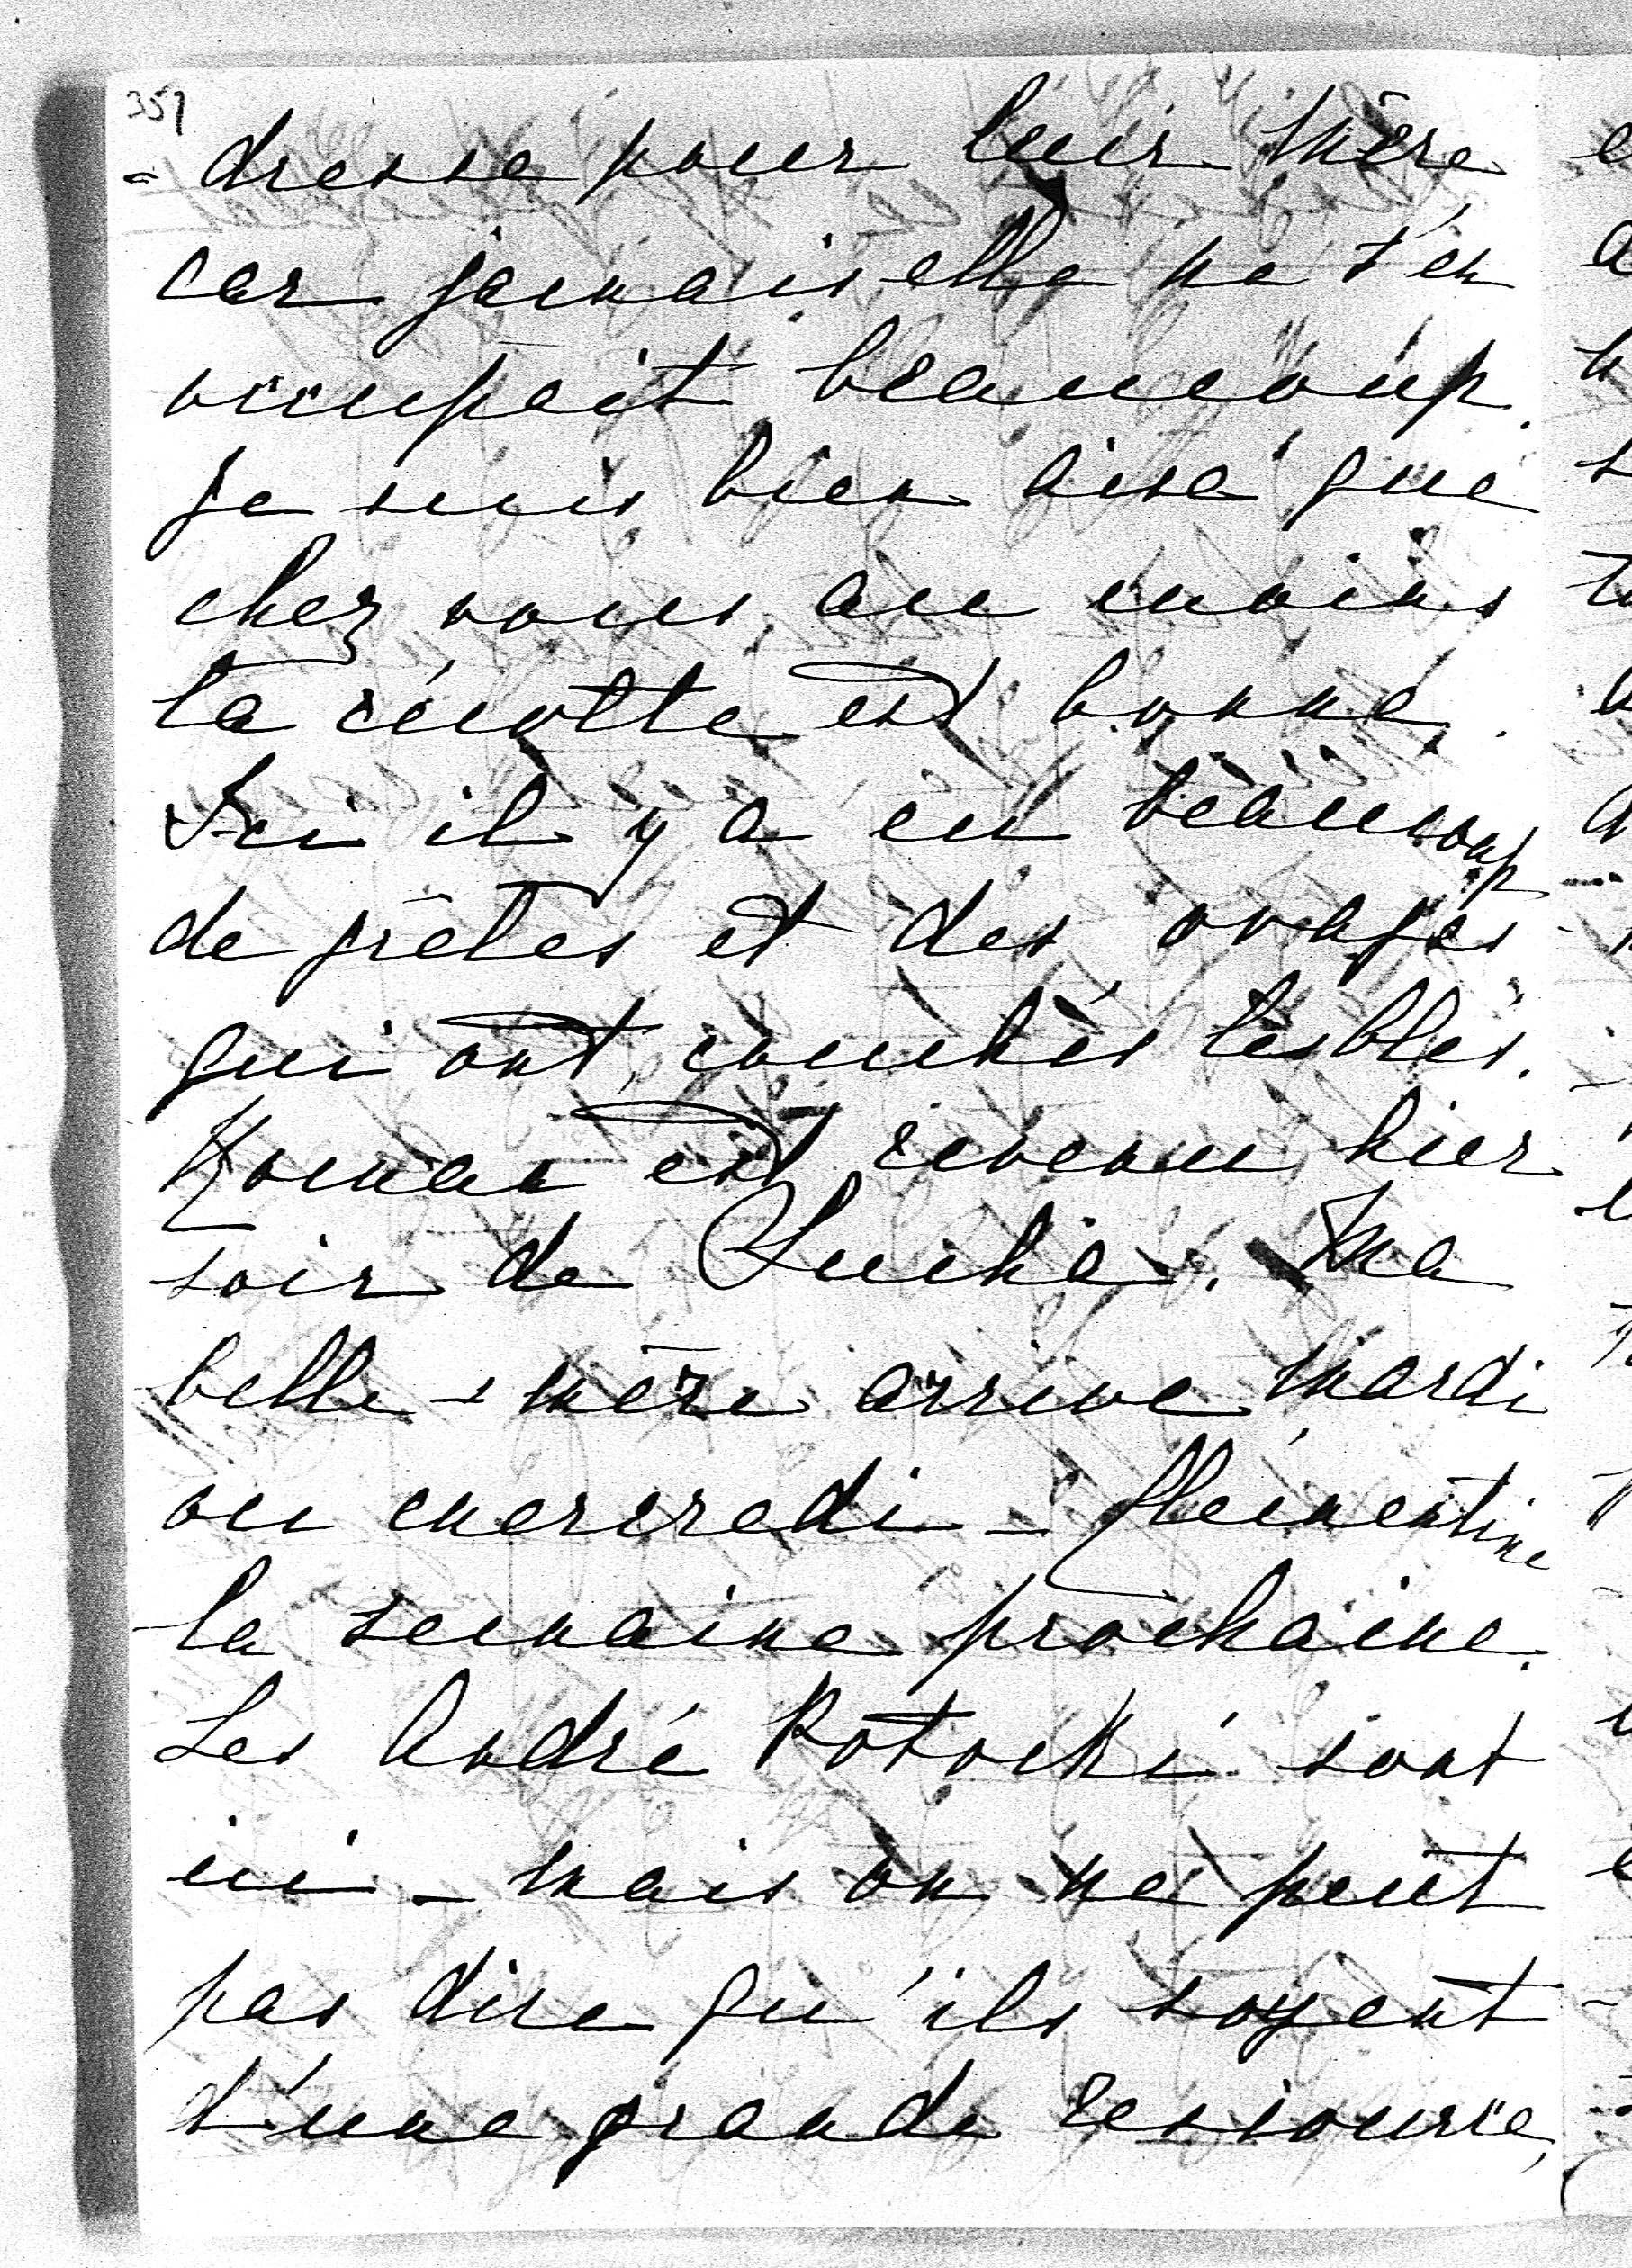 359
-dresse pour leur mère
car jamais elle ne s'en
occupait beaucoup.
Je suis bien aise que
chez vous au moins
la récolte est bonne.
Ici il y a eu beaucoup
de grêles et des orages
qui ont couchés les blés.
Roman est revenu hier
soir de Sucha. Ma
belle-mère arrive mardi
ou mercredi - Clementine
la semaine prochaine.
Les André Potocki sont
ici - mais on ne peut
pas dire qu'ils soyent
d'une grande ressource,